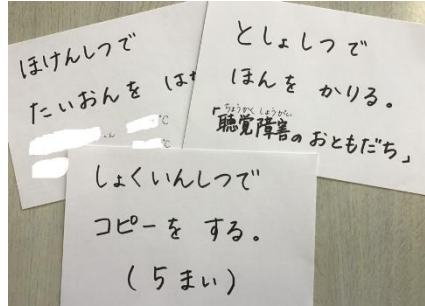 ほけんしつで
たいおんを はか
ん ℃
℃
としょしつで
ほんを かりる。
ちょうかくしょうがい
「聴覚障害のおともだち」
しょくいんしつで
コピーを する。
(5まい)